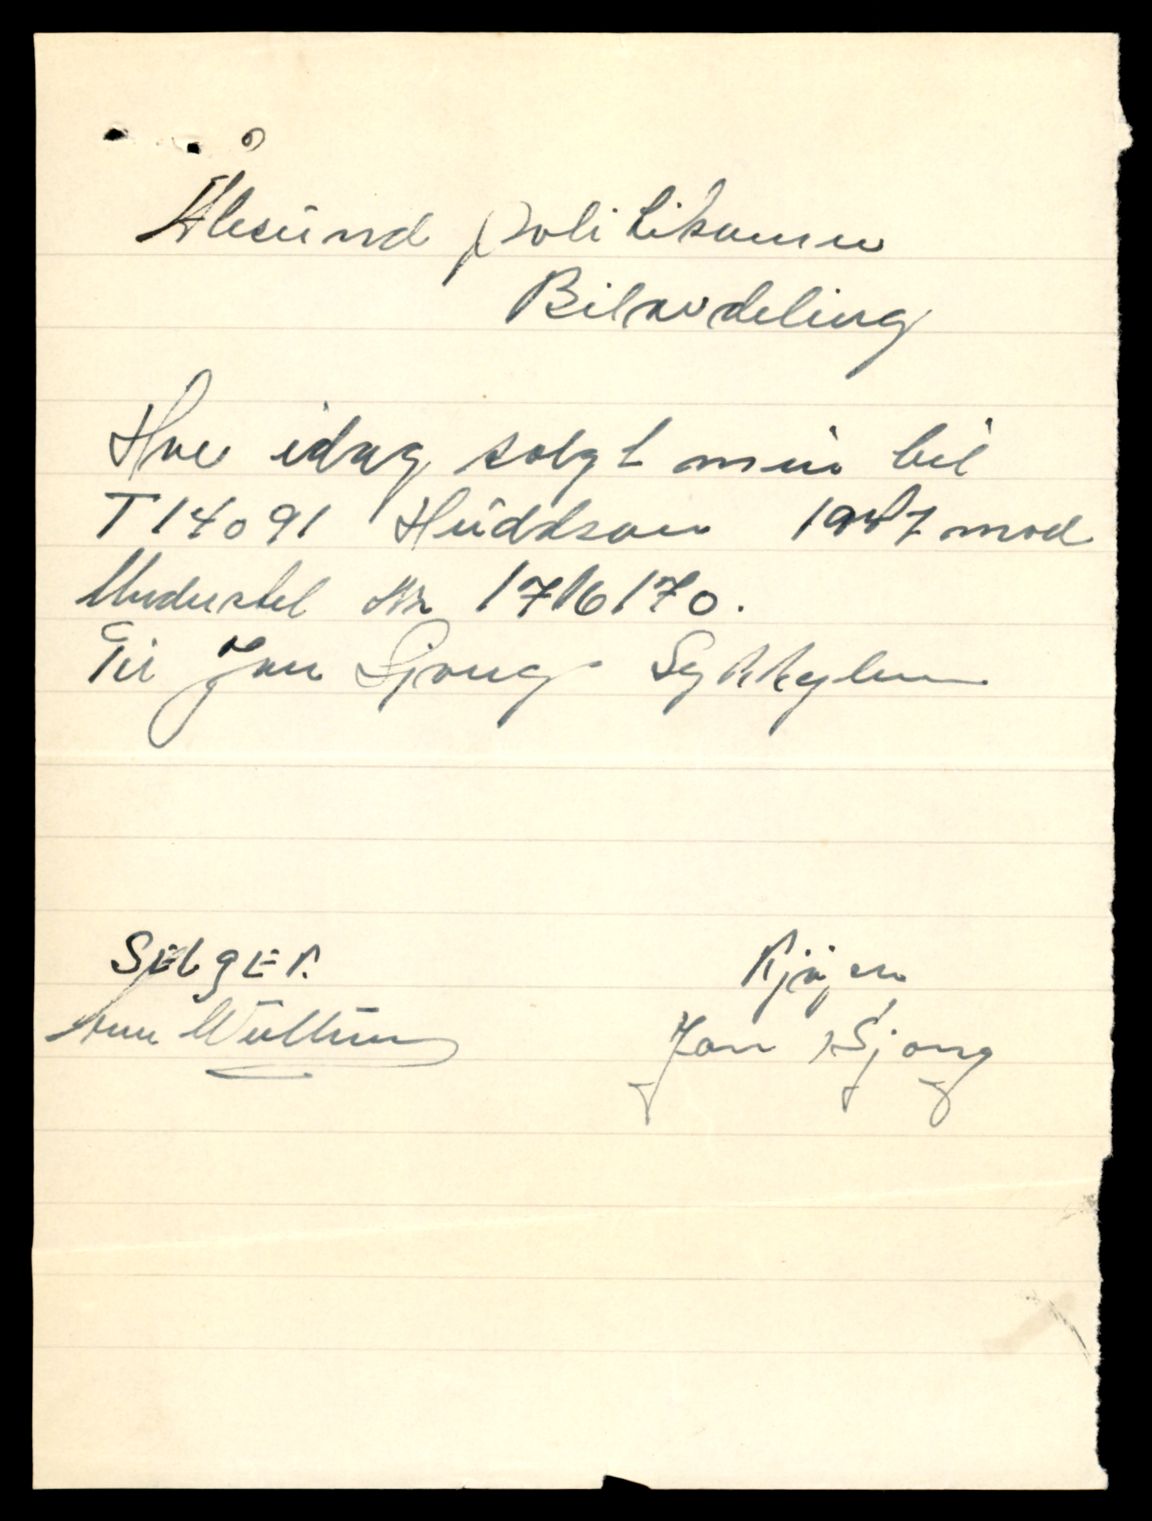 Ålesund politikamer
Bilavdeling
Har idag solgt min bil
T 14091 Huddson 1947 mod
Understel Nr 1716170.
Til Jan Sjong Sykkylven
SELGER. Kjøper
Jan Sjong